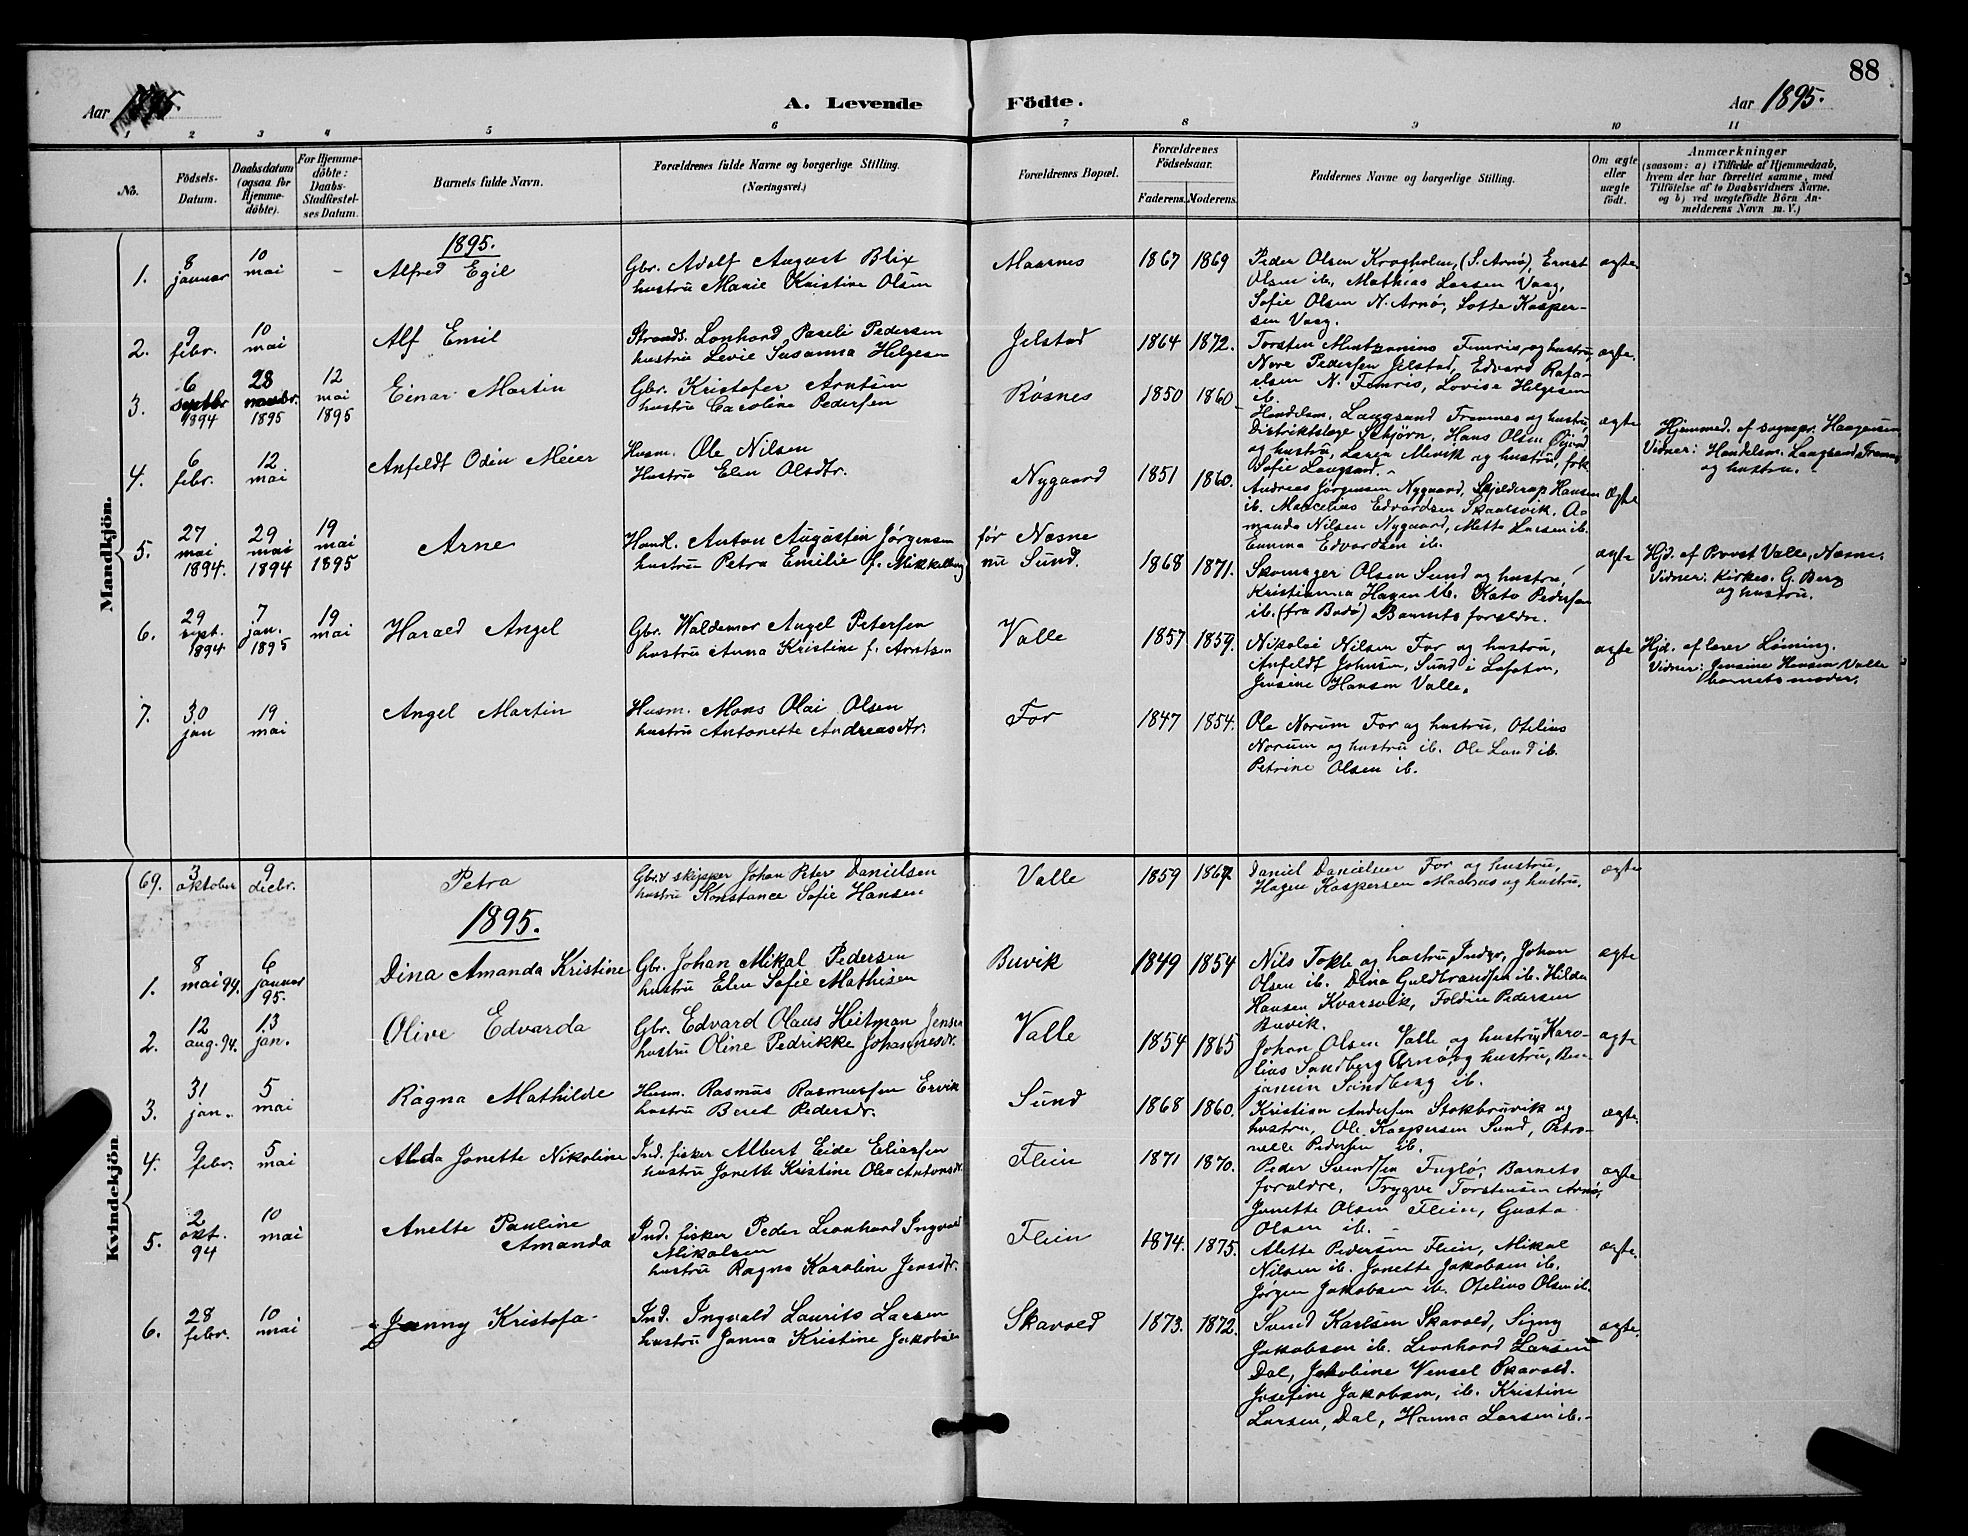 88
Aar 1895.
A. Levende Födte.
Aar 1895.
1 2 3 4 5 6 7 8 9 10 11
No.
Födsels-Datum.
Daabsdatum (ogsaa for Hjemmedöbte).
For Hjemmedöbte: Daabs-Stadfæstelses Datum.
Barnets fulde Navn.
Forældrenes fulde Navne og borgerlige Stilling. (Næringsvei.)
Forældrenes Bopæl.
Forældrenes Födselsaar.
Faderens. Moderens.
Faddernes Navne og borgerlige Stilling.
Om ægte eller uægte födt.
Anmærkninger
(saasom: a) i Tilfælde af Hjemmedaab, hvem der har forrettet samme, med Tilföielse af to Daabsvidners Navne, og b) ved uægtefödte Börn Anmelderens Navn m. V.)
Mandkjön.
1895.
1. 8 januar 10 mai - Alfred Egil
Gbr. Adolf August Blix
hustru Marie Kristine Olsen
Maarnes 1867 1869
Peder Olsen Krogholm, (S. Arnø), Ernst
Olsen ib., Mathias Larsen Vaag,
Sofie Olsen N. Arnø, Lotte Kasper-
sen Vaag.
ægte
2. 9 febr. 10 mai Alf Emil
Strands. Lonhard Paseli Pedersen
hustru Levie Susanna Helgesen
Jelstad 1864 1872.
Torsten Fenris, og hustru,
Nore Pedersen Jelstad, Edvard Rafa-
elsen N. Fenris, Lovise Helgesen
ib.
ægte.
3. 6 septbr 1894 28 1895 12 mai 1895 Einar Martin
Gbr. Kristofer Arntsen
hustru Caroline Pedersen
Røsnes 1850 1860
Handelsm. Laugsand Tramnes og hustru,
Distriktslæge Schjørn, Hans Olsen
og hustru, Laren Alevik og hustru, frk.
Sofie Laugsand. -
ægte
Hjemmed. af sognepr. Haagensen
Vidner: Handelsm. Laugsand,
og hustru.
4. 6 febr. 12 mai Anfeldt Odin Meier
Husm. Ole Nilsen
Hustru Elen Olsdtr.
Nygaard 1851 1860.
Andreas Jørgensen Nygaard, Skjelderup Hansen
ib. Marcelius Edvardsen Skaalsvik, A-
manda Nilsen Nygaard, Mette Larsen ib.
Emma Edvardsen ib.
Ægte
5. 27 mai 1894. 29 mai 1894 19 mai 1895 Arne
Handl. Anton Augustin Jørgensen
hustru Petra Emilie f. Mikkelborg
før Næsne
nu Sund. 1868 1871.
Skomager Olsen Sund og hustru,
Kristianna Hagen ib. Kato Pedersen
ib. (fra Bodø) Barnets forældre.
ægte
Hjd. af Provst Valle, Næsne.
Vidner: Kirkes. G. Berg
og hustru.
6. 29 sept. 1894 7 jan. 1895 19 mai Harald Angel
Gbr. Waldemar Angel Petersen
hustru Anna Kristine f. Arntsen
Valle 1857 1859.
Nikolai Nilsen For og hustru,
Anfeldt Johnsen, Sund i Lofoten,
Jensine Hansen Valle.
ægte
Hjd. af lærer Løining.
Vidner: Jensine Hansen Valle
barnets moder.
7. 30 jan 19 mai Angel Martin
Husm. Mons Olai Olsen
hustru Antonette Andreasdtr.
For 1847 1854.
Ole Norum For og hustru, Otelius
Norum og hustru ib. Ole Lund ib.
Petrine Olsen ib.
Kvindekjön
69. 3 oktober 9 decbr. Petra
Gbr. & skipper Johan Peter Danielsen
hustru Konstance Sofie Hansen
Valle 1859 1867
Daniel Danielsen For og hustru,
Hagen Kaspersen Maarnes og hustru.
ægte
1895.
1. 8 mai 94. 6 januar 95. Dina Amanda Kristine
Gbr. Johan Mikal Pedersen
hustru Elen Sofie Mathisen
Buvik 1849 1854
Nils Tokle og hustru Indyr, Johan
Olsen ib. Dina Guldbrandsen ib. Hilda
Hansen Kvarsvik, Foldine Pedersen
Buvik.
ægte
2. 12 aug. 94. 13 jan. Olive Edvarda
Gbr. Edvard Olaus Heitman Jensen
hustru Oline Pedrikke Johannesdr.
Valle 1854 1865
Johan Olsen Valle og hustru, Karo-
lius Sandberg Arnø og hustru, Ben-
jamin Sandberg ib.
ægte
3. 31 jan. 5 mai Ragna Mathilde
Husm. Rasmus Rasmussen Ervik
hustru Beret Pedersdr.
Sund 1868 1860.
Kristian Andersen Stokbruvik og
hustru, Ole Kaspersen Sund, Petro-
nelle Pedersen ib.
ægte.
4. 9 febr. 5 mai Alda Jonette Nikoline
Ind. fisker Albert Eide Eliassen
hustru Jonette Kristine Olea Antonsdr.
Flein 1871 1870.
Peder Svendsen Fuglø, Barnets
forældre, Trygve Torstensen Arnø,
Jonette Olsen Flein, Gusta
Olsen ib. -
ægte
5. 2 okt. 94 10 mai Anette Pauline
Amanda
Ind. fisker Peder Leonhard Ingvald
Mikalsen
hustru Ragna Karoline Jensdtr.
Flein 1874. 1875.
Alette Pedersen Flein, Mikal
Nilsen ib. Jonette Jakobsen ib.
Jørgen Jakobsen ib. Otelius Olsen ib.
ægte.
6. 28 febr. 10 mai Jenny Kristofa
Ind. Ingvald Laurits Larsen
hustru Janna Kristine Jakobsen
Skavold 1873. 1872.
Svend Karlsen Skavold, Signy
Jakobsen ib. Leonhard Larsen
Dal, Jakobine Wensel Skavold.
Josefine Jakobsen, ib. Kristine
Larsen, Dal, Hanna Larsen ib. -
ægte.